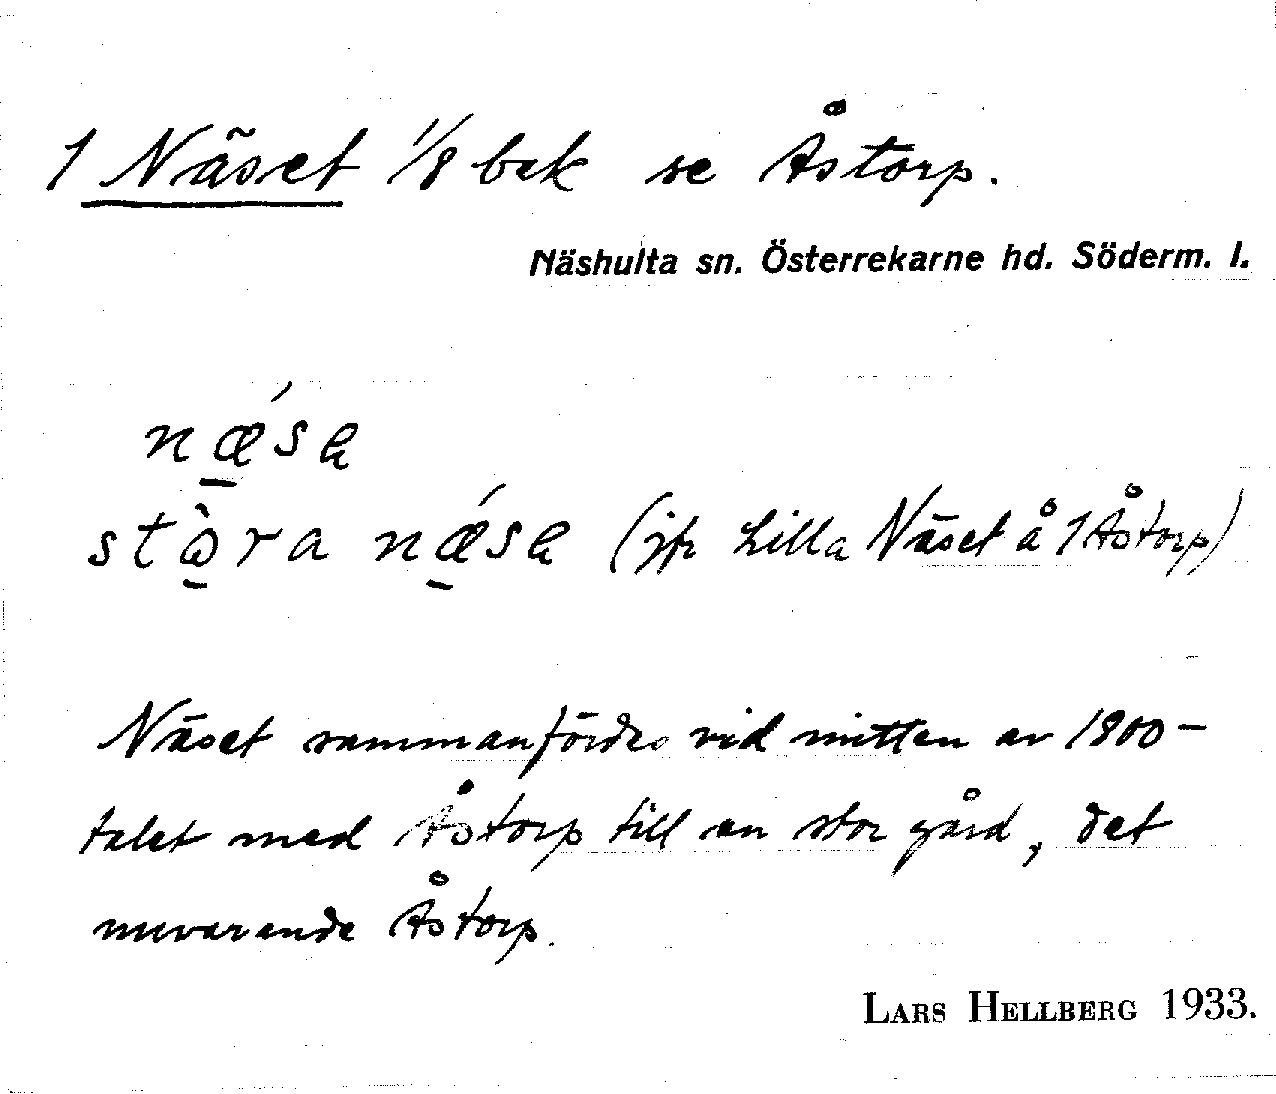 1 Näset 1/8 bek se Åstorp.
Näshulta sn. Österrekarne hd. Söderm. l.
nǽ̲sa
stò̲ra nǽ̲sa (jfr Lilla Näset å 1 Åstorp)
Näset sammanfördes vid mitten av 1800-
talet med Åstorp till en stor gård, det
nuvarande Åstorp.
LARS HELLBERG 1933.